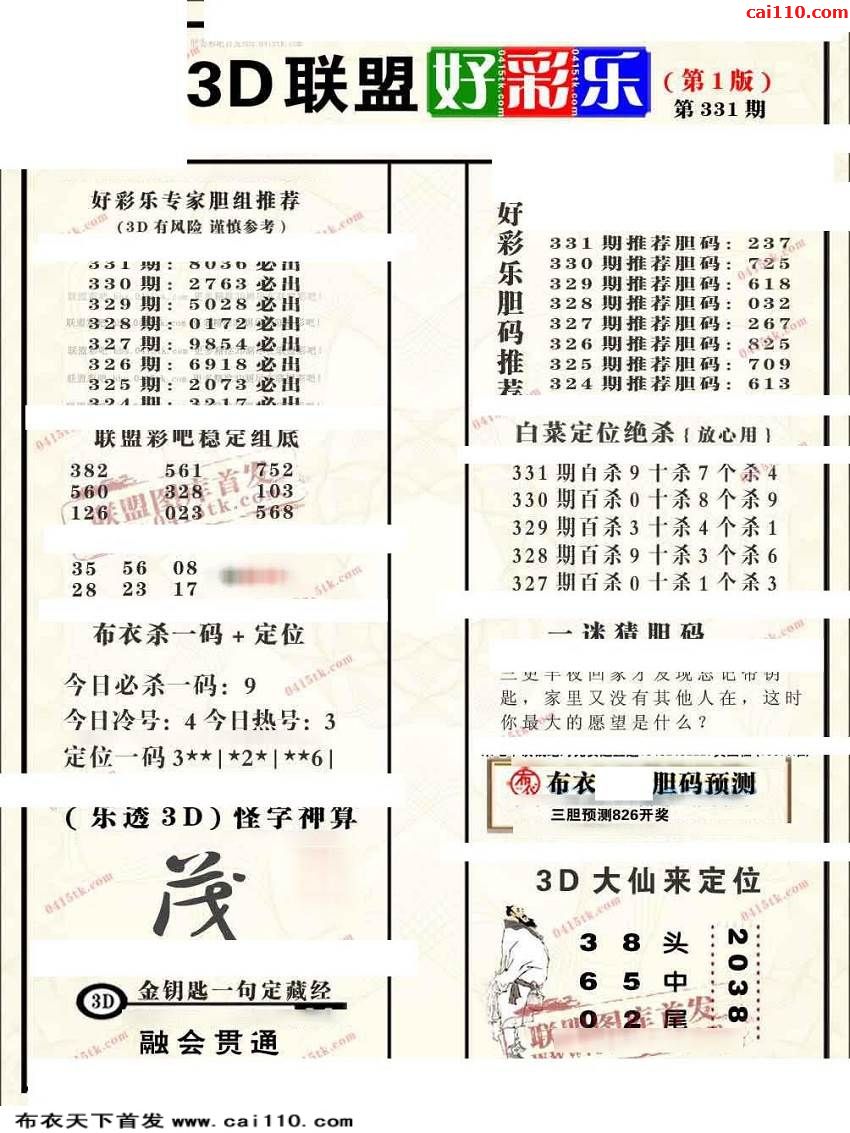 cai110.com
3D联盟好彩乐(第1版)
第331期
好彩乐专家胆组推荐
(3D有风险 谨慎参考)
331期: 8036必出
330期: 2763必出
329期: 5028必出
328期: 0172必出
327期: 9854必出
326期: 6918必出
325期: 2073必出
324期: 3217必出
联盟彩吧稳定组底
382 561 752
560 328 103
126 023 568
35 56 08
28 23 17
布衣杀一码+定位
今日必杀一码: 9
今日冷号: 4 今日热号: 3
定位一码3**|*2*|**6|
(乐透3D)怪字神算
茂
3D 金钥匙一句定藏经
融会贯通
好彩乐胆码推荐
331期推荐胆码: 237
330期推荐胆码: 725
329期推荐胆码: 618
328期推荐胆码: 032
327期推荐胆码: 267
326期推荐胆码: 825
325期推荐胆码: 709
324期推荐胆码: 613
白菜定位绝杀{放心用}
331期百杀9十杀7个杀4
330期百杀0十杀8个杀9
329期百杀3十杀4个杀1
328期百杀9十杀3个杀6
327期百杀0十杀1个杀3
一迷猜胆码
三更半夜回家才发现忘记带钥
匙，家里又没有其他人在，这时
你最大的愿望是什么？
布衣 胆码预测
三胆预测826开奖
3D大仙来定位
3 8 头
6 5 中
0 2 尾
2038
联盟图库首发
0415tk.com
布衣天下首发 www.cai110.com